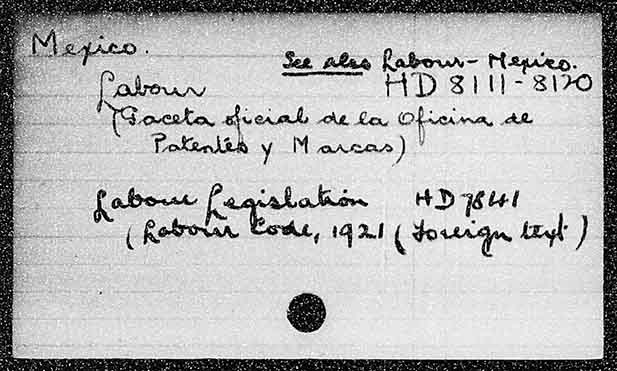 Mexico.
See also Labour - Mexico.
Labour HD 8111-8120
(Gaceta oficial de la Oficina de
Patentes y Marcas)
Labour Legislation HD 7841
(Labour Code, 1921 (Foreign text)